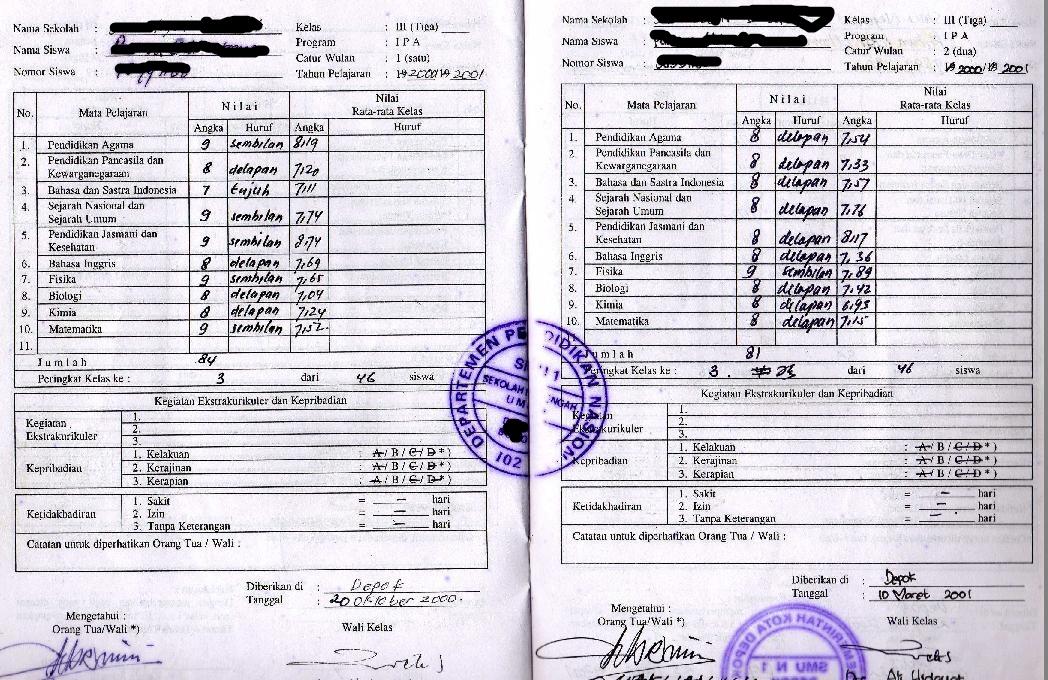 Nama Sekolah :
Nama Siswa :
Nomor Siswa :
Kelas : III (Tiga)
Program : I P A
Catur Wulan : 1 (satu)
Tahun Pelajaran : 19 2000/19 2001
No. Mata Pelajaran Nilai Nilai Rata-rata Kelas
Angka Huruf Angka Huruf
1. Pendidikan Agama 9 sembilan 8,19
2. Pendidikan Pancasila dan
Kewarganegaraan 8 delapan 7,20
3. Bahasa dan Sastra Indonesia 7 tujuh 7,11
4. Sejarah Nasional dan
Sejarah Umum 9 sembilan 7,74
5. Pendidikan Jasmani dan
Kesehatan 9 sembilan 8,74
6. Bahasa Inggris 8 delapan 7,69
7. Fisika 9 sembilan 7,65
8. Biologi 8 delapan 7,04
9. Kimia 8 delapan 7,24
10. Matematika 9 sembilan 7,52
11.
Jumlah 84
Peringkat Kelas ke : 3 dari 46 siswa
Kegiatan Ekstrakurikuler dan Kepribadian
Kegiatan
Ekstrakurikuler
1.
2.
3.
Kepribadian
1. Kelakuan : A / B / C / D *)
2. Kerajinan : A / B / C / D *)
3. Kerapian : A / B / C / D *)
Ketidakhadiran
1. Sakit = — hari
2. Izin = — hari
3. Tanpa Keterangan = — hari
Catatan untuk diperhatikan Orang Tua / Wali :
Diberikan di : Depok
Tanggal : 20 Oktober 2000.
Mengetahui :
Orang Tua/Wali *) Wali Kelas
Nama Sekolah :
Nama Siswa :
Nomor Siswa :
Kelas : III (Tiga)
Program : I P A
Catur Wulan : 2 (dua)
Tahun Pelajaran : 19 2000/19 2001
No. Mata Pelajaran Nilai Nilai Rata-rata Kelas
Angka Huruf Angka Huruf
1. Pendidikan Agama 8 delapan 7,54
2. Pendidikan Pancasila dan
Kewarganegaraan 8 delapan 7,33
3. Bahasa dan Sastra Indonesia 8 delapan 7,57
4. Sejarah Nasional dan
Sejarah Umum 8 delapan 7,76
5. Pendidikan Jasmani dan
Kesehatan 8 delapan 8,17
6. Bahasa Inggris 8 delapan 7,36
7. Fisika 9 sembilan 7,89
8. Biologi 8 delapan 7,42
9. Kimia 8 delapan 6,93
10. Matematika 8 delapan 7,15
Jumlah 81
Peringkat Kelas ke : 3. dari 46 siswa
Kegiatan Ekstrakurikuler dan Kepribadian
Kegiatan
Ekstrakurikuler
1.
2.
3.
Kepribadian
1. Kelakuan : A / B / C / D *)
2. Kerajinan : A / B / C / D *)
3. Kerapian : A / B / C / D *)
Ketidakhadiran
1. Sakit = — hari
2. Izin = — hari
3. Tanpa Keterangan = — hari
Catatan untuk diperhatikan Orang Tua / Wali :
Diberikan di : Depok
Tanggal : 10 Maret 2001
Mengetahui :
Orang Tua/Wali *) Wali Kelas
DEPARTEMEN PENDIDIKAN NASIONAL
SMU N 1